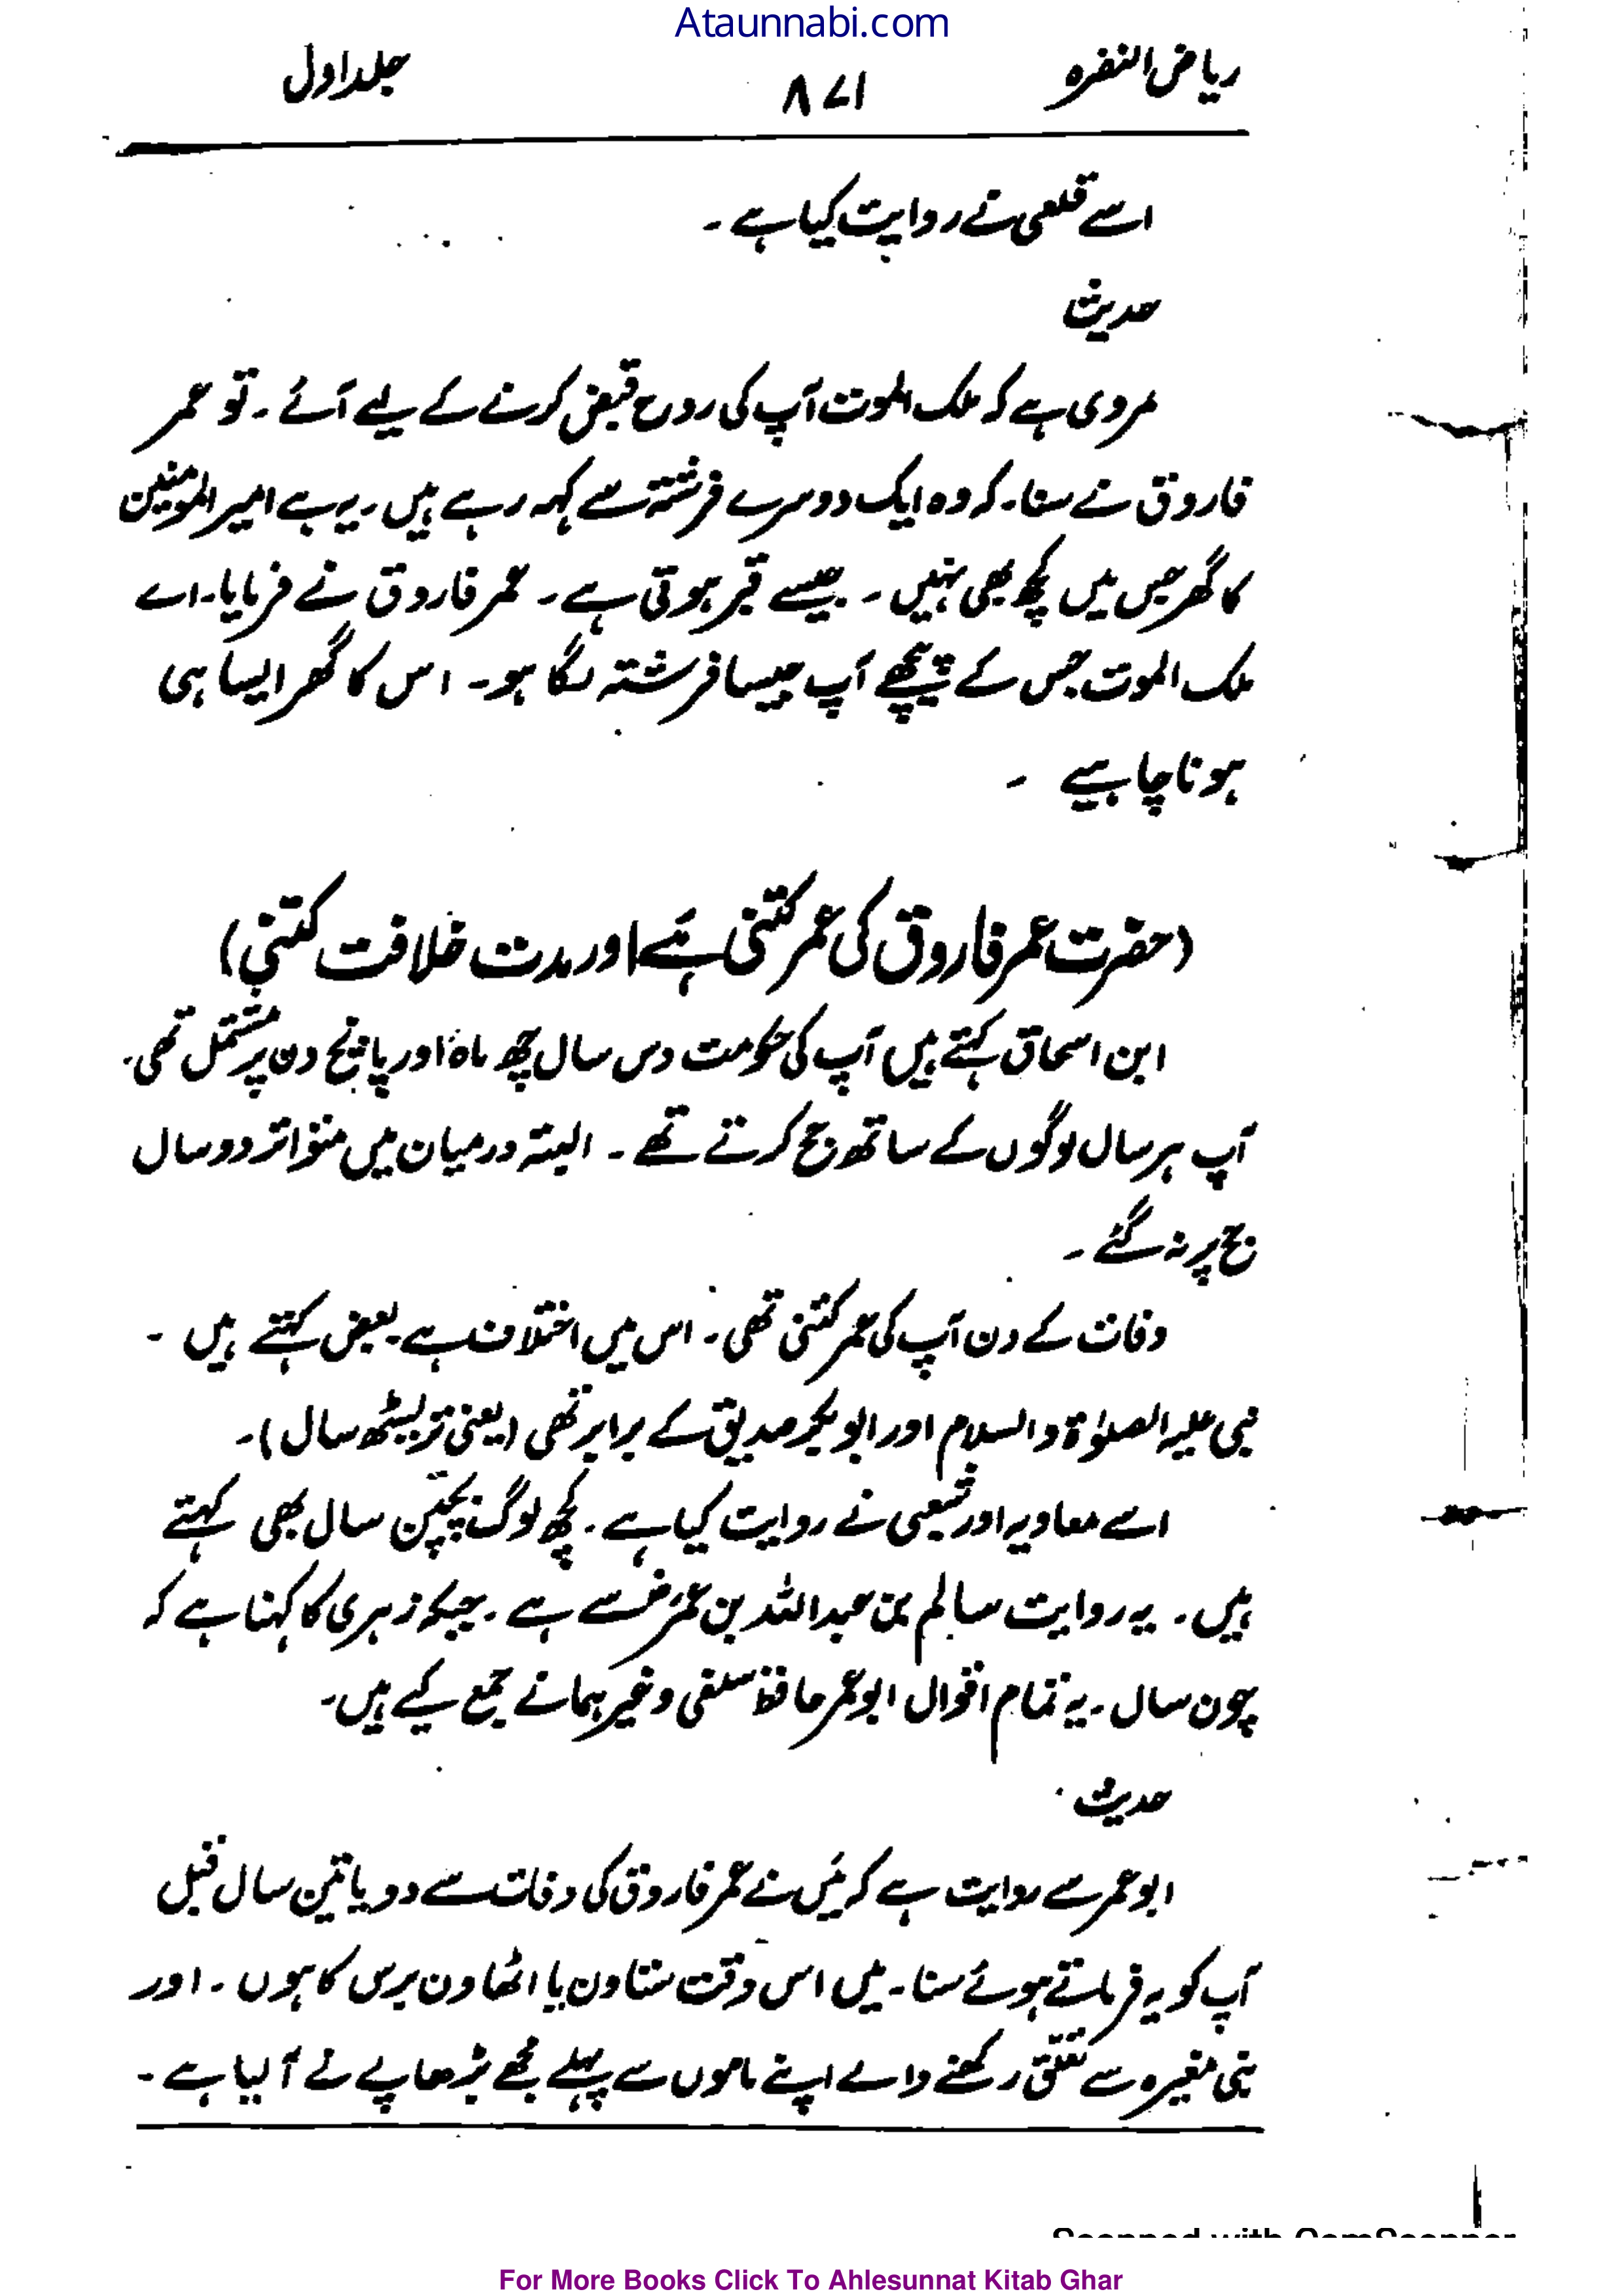 Ataunnabi.com
ریاض النضرہ ۸۷۱ جلد اول
اسے قلعی نے روایت کیا ہے ۔
حدیث
مروی ہے کہ ملک الموت آپ کی روح قبض کرنے کے لیے آئے ۔ تو عمر
فاروق نے سنا۔ کہ وہ ایک دوسرے فرشتہ سے کہہ رہے ہیں ۔ یہ ہے امیر المومنین
کا گھر جس میں کچھ بھی نہیں ۔ جیسے قبر ہوتی ہے ۔ عمر فاروق نے فرمایا۔ اے
ملک الموت جس کے پیچھے آپ جیسا فرشتہ لگا ہو۔ اس کا گھر ایسا ہی
ہونا چاہیے ۔
(حضرت عمر فاروق کی عمر کتنی ہے اور مدت خلافت کتنی)
ابن اسحاق کہتے ہیں آپ کی حکومت دس سال چھ ماہ اور پانچ دن پر مشتمل تھی۔
آپ ہر سال لوگوں کے ساتھ حج کرتے تھے ۔ البتہ درمیان میں متواتر دو سال
حج پر نہ گئے ۔
وفات کے دن آپ کی عمر کتنی تھی ۔ اس میں اختلاف ہے۔ بعض کہتے ہیں ۔
نبی علیہ الصلوٰۃ والسلام اور ابو بکر صدیق کے برابر تھی (یعنی تریسٹھ سال)۔
اسے معاویہ اور شعبی نے روایت کیا ہے ۔ کچھ لوگ پچپن سال بھی کہتے
ہیں ۔ یہ روایت سالم بن عبداللہ بن عمرؓ سے ہے ۔ جبکہ زہری کا کہنا ہے کہ
چون سال ۔ یہ تمام اقوال ابو عمر حافظ سلفی وغیرہما نے جمع کیے ہیں۔
حدیث
ابو عمر سے روایت ہے کہ میں نے عمر فاروق کی وفات سے دو یا تین سال قبل
آپ کو یہ فرماتے ہوئے سنا ۔ میں اس وقت ستاون یا اٹھاون برس کا ہوں ۔ اور
بنی مغیرہ سے تعلق رکھنے والے اپنے ماموں سے پہلے مجھے بڑھاپے نے آ لیا ہے ۔
Scanned with CamScanner
For More Books Click To Ahlesunnat Kitab Ghar